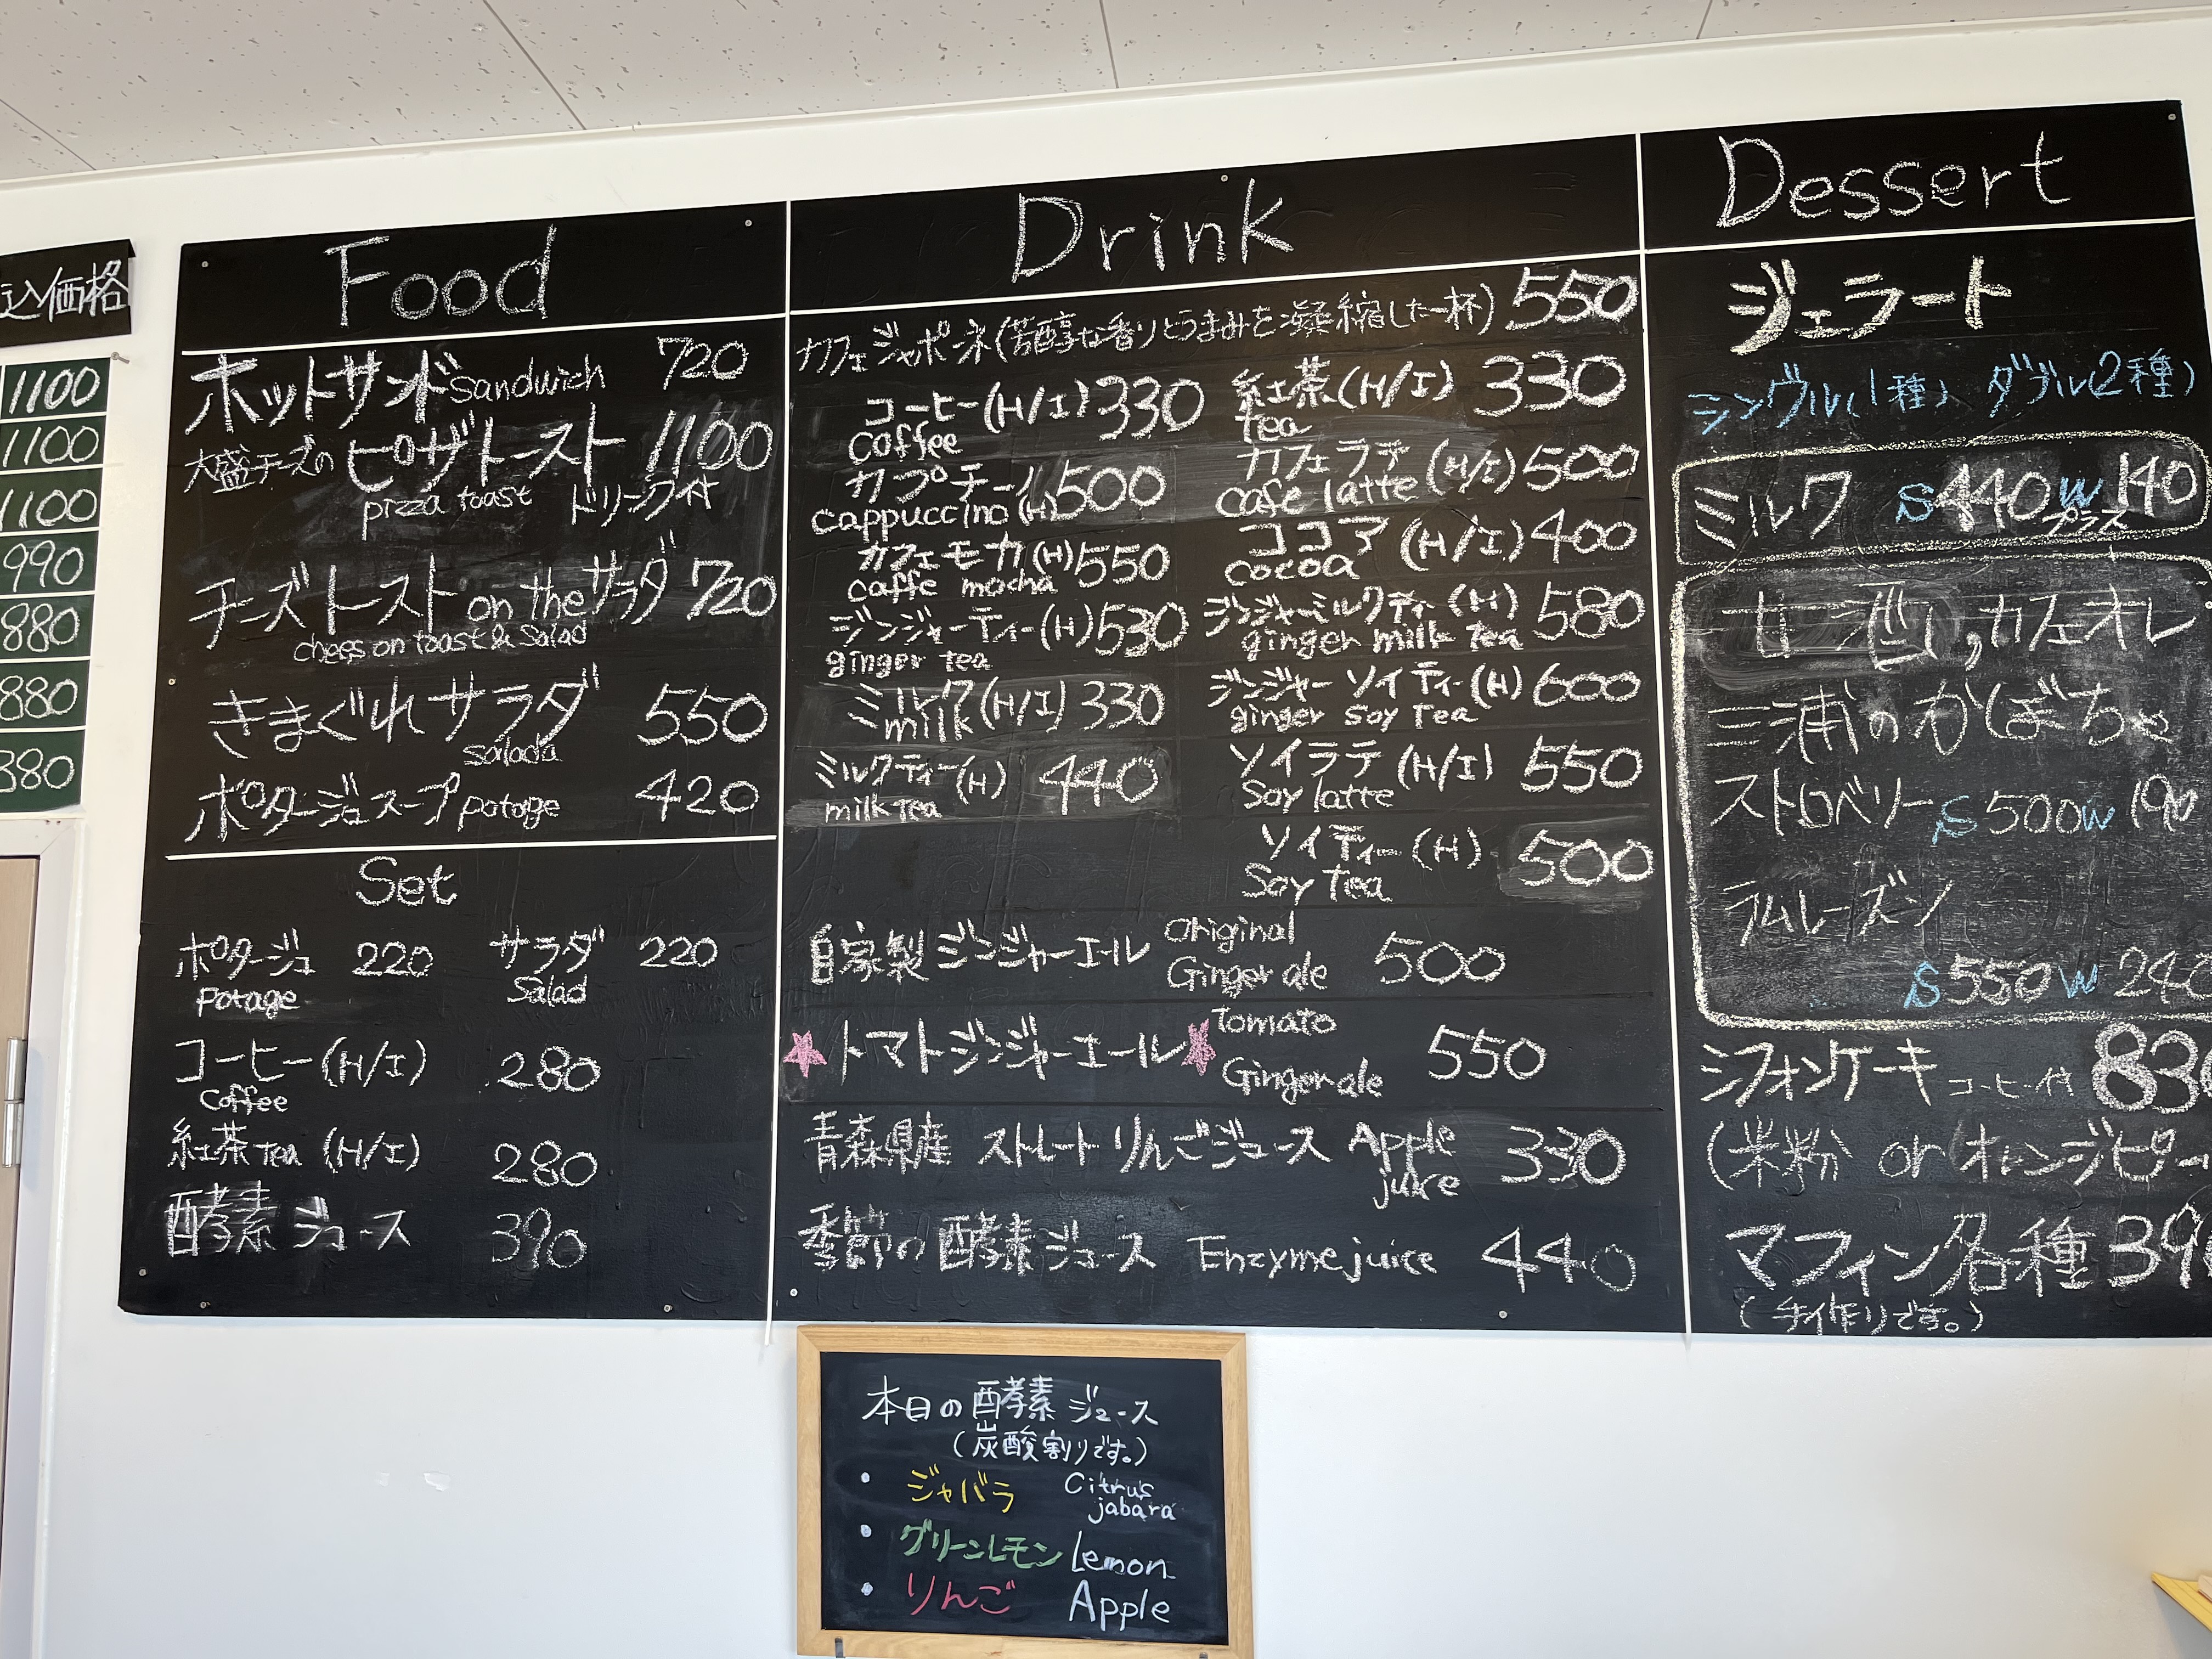 込価格
1100
1100
1100
990
880
880
380
Food
ホットサンド sandwich 720
大盛チーズの ピザトースト 1100
pizza toast ドリンク付
チーズトースト on the サラダ 720
chees on toast & Salad
きまぐれサラダ 550
salada
ポタージュスープ potage 420
Set
ポタージュ 220 サラダ 220
potage Salad
コーヒー(H/I) 280
coffee
紅茶 Tea (H/I) 280
酵素ジュース 390
Drink
カフェジャポーネ(芳醇な香りとうまみを凝縮した一杯) 550
コーヒー(H/I) 330 紅茶(H/I) 330
coffee tea
カプチーノ 500 カフェラテ (H/I) 500
cappuccino (H) cafe latte
カフェモカ(H) 550 ココア (H/I) 400
caffe mocha cocoa
ジンジャーティー(H) 530 ジンジャーミルクティー(H) 580
ginger tea ginger milk tea
ミルク(H/I) 330 ジンジャーソイティー(H) 600
milk ginger soy Tea
ミルクティー(H) 440 ソイラテ (H/I) 550
milk Tea Soy latte
ソイティー(H) 500
Soy Tea
自家製ジンジャーエール Original Ginger ale 500
トマトジンジャーエール Tomato Ginger ale 550
青森県産 ストレートりんごジュース Apple juice 330
季節の酵素ジュース Enzyme juice 440
Dessert
ジェラート
シングル(1種) ダブル(2種)
ミルク S440 W140
プラス
甘酒,カフェオレ
三浦のかぼちゃ
ストロベリー S500 W190
ラムレーズン
S550 W240
シフォンケーキ コーヒー付 830
(米粉 or オレンジピー
マフィン各種 390
(手作りです。)
本日の酵素ジュース
(炭酸割りです。)
• ジャバラ Citrus jabara
• グリーンレモン Lemon
• りんご Apple